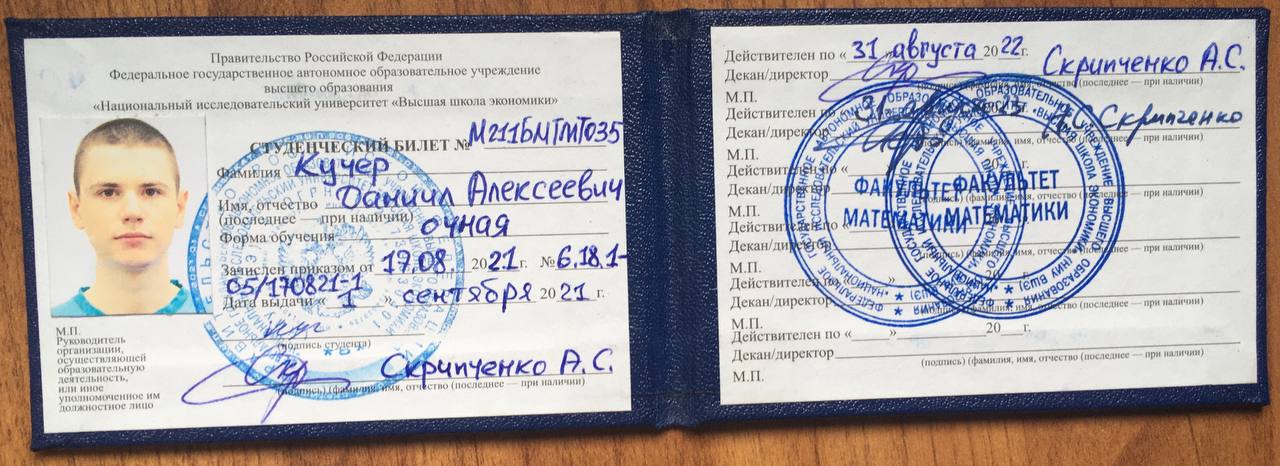 Правительство Российской Федерации
Федеральное государственное автономное образовательное учреждение
высшего образования
«Национальный исследовательский университет «Высшая школа экономики»
СТУДЕНЧЕСКИЙ БИЛЕТ № М211БМТМТ035
Фамилия Кучер
Имя, отчество Даниил Алексеевич
(последнее — при наличии)
Форма обучения очная
Зачислен приказом от 17.08. 2021 г. № 6.18.1-
05/170821-1
Дата выдачи « 1 » сентября 2021 г.
(подпись студента)
Скрипченко А.С.
(подпись) (фамилия, имя, отчество (последнее — при наличии)
М.П.
Руководитель
организации,
осуществляющей
образовательную
деятельность,
или иное
уполномоченное им
должностное лицо
Действителен по « 31 » августа 2022 г.
Декан/директор Скрипченко А.С.
М.П.
Действителен по «
Декан/директор АС Скрипченко
(фамилия, имя, отчество (последнее — при наличии)
М.П.
Действителен по «
Декан/директор
(подпись) (фамилия, имя, отчество (последнее — при наличии)
М.П.
Действителен по «
Декан/директор
(последнее — при наличии)
М.П.
Действителен по «
Декан/директор
(последнее — при наличии)
М.П.
Действителен по « » 20 г.
Декан/директор
(подпись) (фамилия, имя, отчество (последнее — при наличии)
М.П.
ФАКУЛЬТЕТ
МАТЕМАТИКИ
ФАКУЛЬТЕТ
МАТЕМАТИКИ